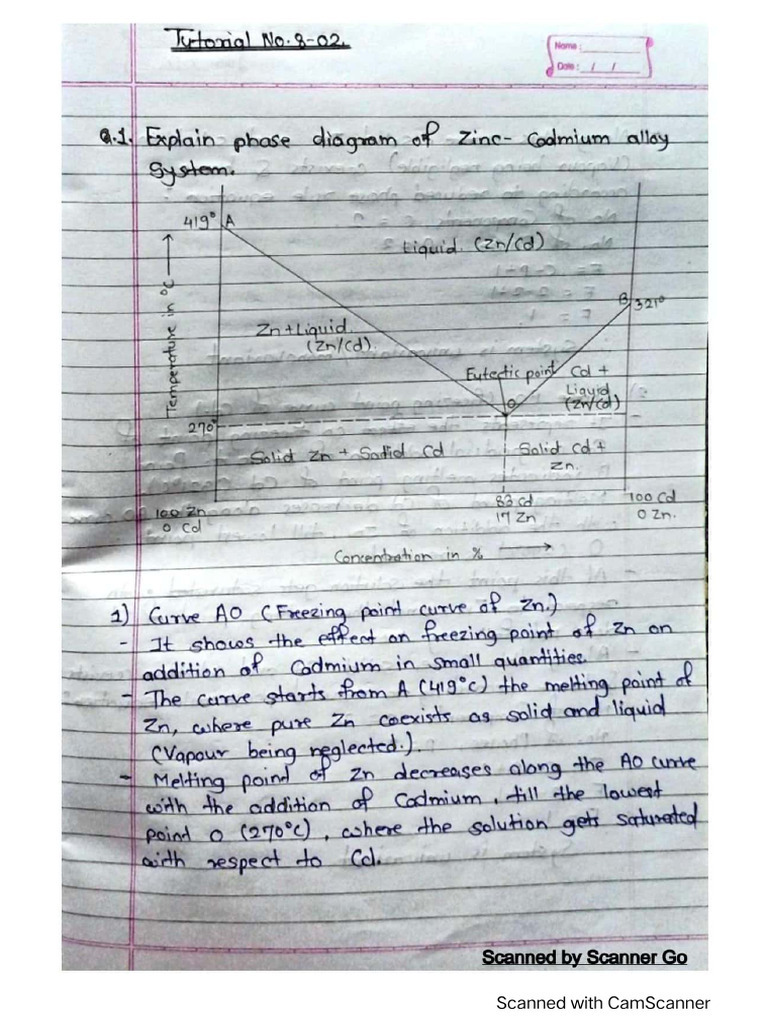 Tutorial No. 8-02.
Name :
Date : / /
Q.1. Explain phase diagram of Zinc- Cadmium alloy
System.
419° A
Liquid (Zn/Cd)
Temperature in °C
B 321°
Zn+Liquid
(Zn/Cd)
Eutectic point
Cd +
Liquid
(Zn/Cd)
O
270°
Solid Zn + Solid Cd
Solid Cd +
Zn.
100 Zn
0 Cd
83 Cd
17 Zn
100 Cd
0 Zn.
Concentration in %
1) Curve AO (Freezing point curve of Zn.)
- It shows the effect on freezing point of Zn on
addition of Cadmium in small quantities.
- The curve starts from A (419°C) the melting point of
Zn, where pure Zn coexists as solid and liquid
(Vapour being neglected.).
- Melting point of Zn decreases along the AO curve
with the addition of Cadmium, till the lowest
point O (270°C), where the solution gets saturated
with respect to Cd.
Scanned by Scanner Go
Scanned with CamScanner